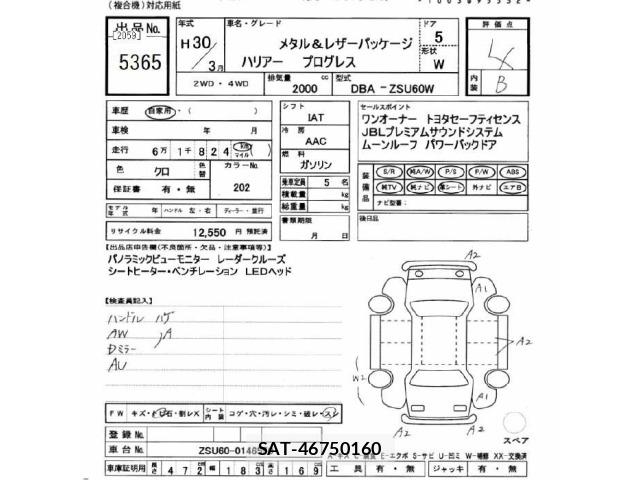 (複合機)対応用紙
出品No.
[2059]
5365
年式
H30/3月
車名・グレード
メタル&レザーパッケージ
ハリアー プログレス
ドア
5
形状
W
評価点
4
内装
B
2WD・4WD
排気量
2000
cc
型式
DBA-ZSU60W
車歴
自家用・( )
車検
年 月
走行
6万1千824
マイル
色
クロ
色替
カラーNo.
202
保証書
有・無
モデル年式
年
ハンドル
左・右
ディーラー・並行
リサイクル料金
12,550円 預託済
シフト
IAT
冷房
AAC
燃料
ガソリン
乗車定員
5名
積載量
kg
総重量
kg
書類期限
月 日
セールスポイント
ワンオーナー トヨタセーフティセンス
JBLプレミアムサウンドシステム
ムーンルーフ パワーバックドア
装備品
S/R
純A/W
P/S
P/W
ABS
純TV
純ナビ
革シート
外ナビ
エアB
ナビ型番:
後日品
【出品店申告欄(不良箇所・欠品・注意事項等)】
パノラミックビューモニター レーダークルーズ
シートヒーター・ベンチレーション LEDヘッド
【検査員記入】
ハンドル ハゲ
AW
A2
A1
A2
W2
A1
A2
スペア
FW
キズ・
石・割レX
シート内装
コゲ・穴・汚レ・シミ・破レ・スレ
登録No.
車台No.
ZSU60-0146
SAT-46750160
車庫証明用
長さ
472
幅
183
高さ
169
工具
有・無
ジャッキ
有・無
E-エクボ S-サビ U-凹ミ W-補修 XX-交換済